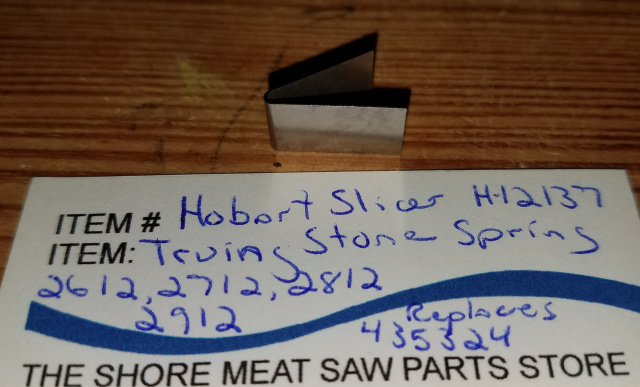 ITEM # Hobart Slicer H-12137
ITEM: Truing Stone Spring
2612, 2712, 2812
2912
Replaces
435324
THE SHORE MEAT SAW PARTS STORE